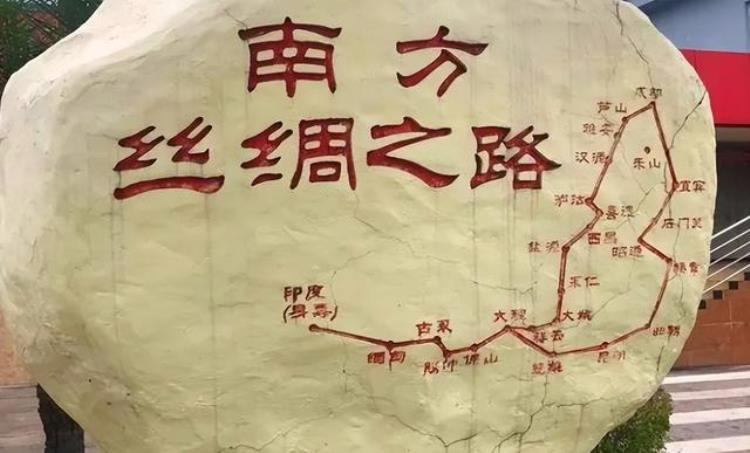 南方
丝绸之路
成都
芦山
雅安
汉源
乐山
宜宾
泸沽
喜德
石门关
西昌
盐源
昭通
大姚
昆明
大理
祥云
楚雄
保山
腾冲
缅甸
印度
(身毒)